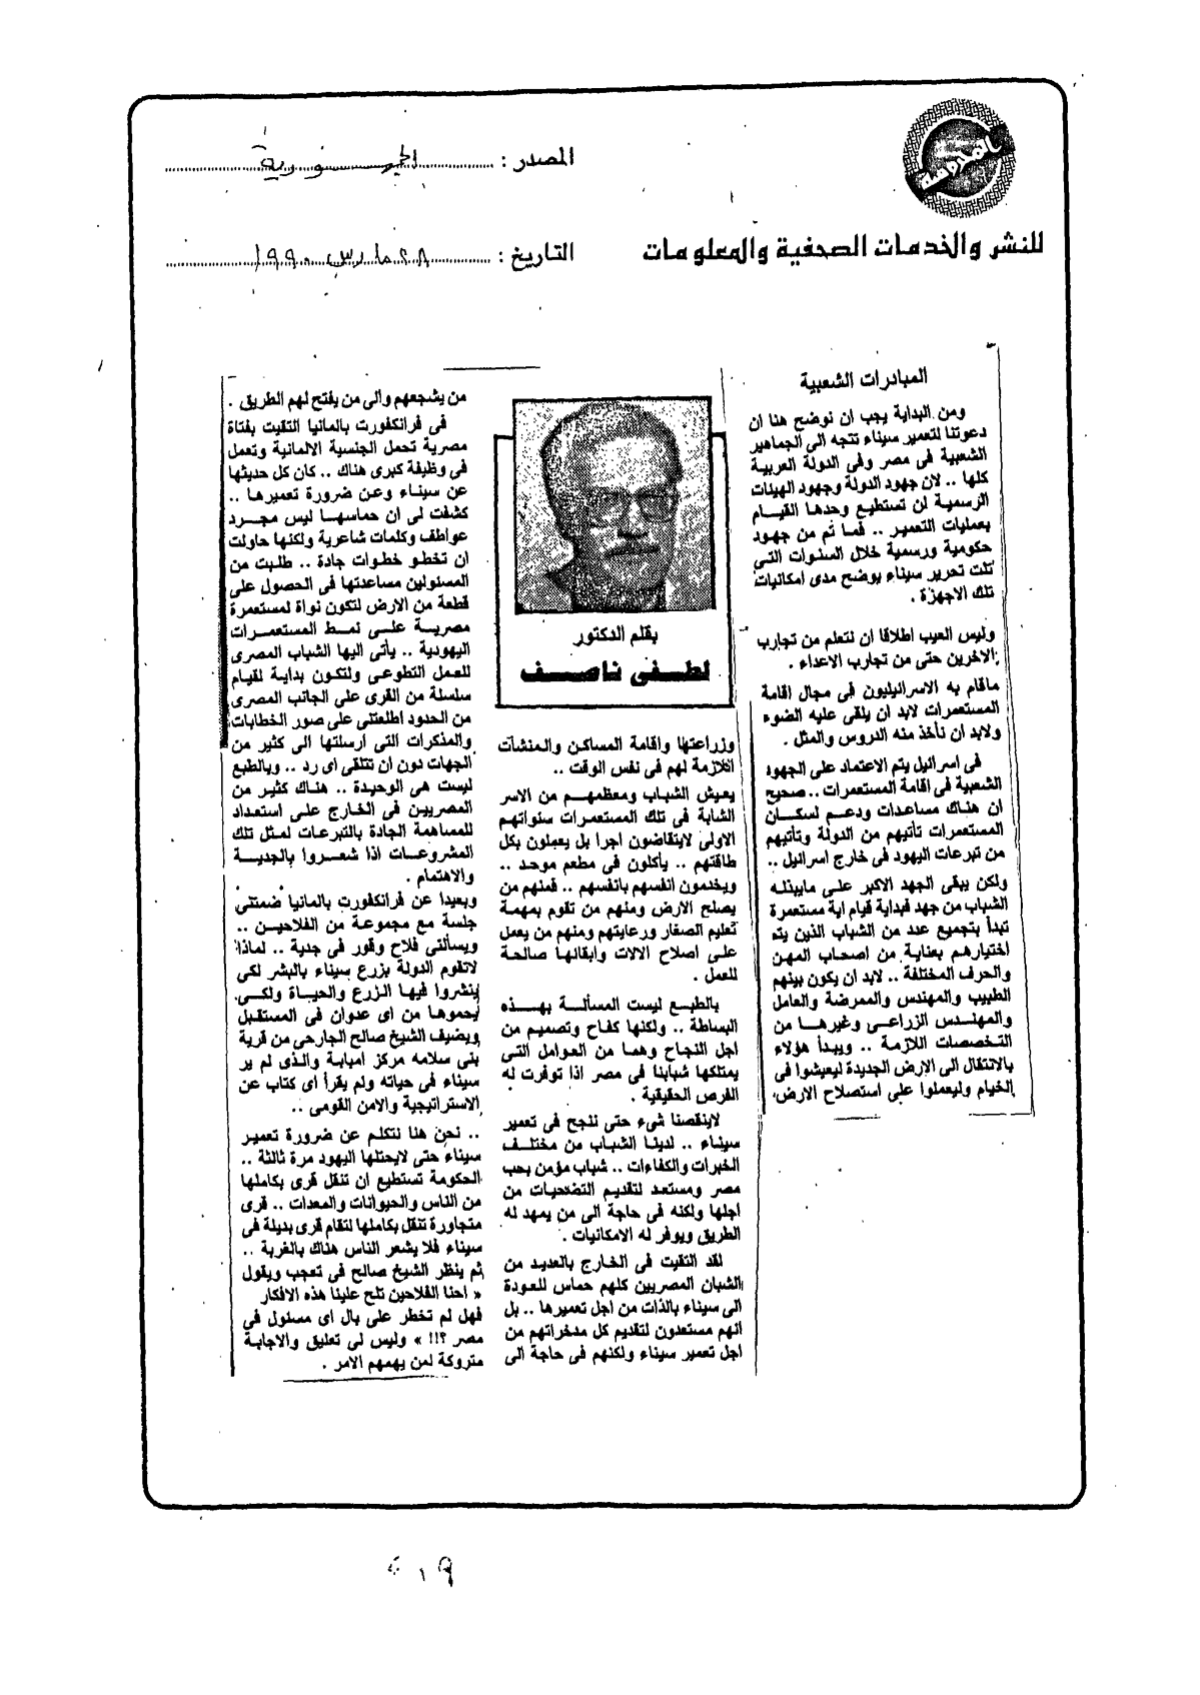 المحروسة
للنشر والخدمات الصحفية والمعلومات
المصدر : الجمهورية
التاريخ : ٢٨ مارس ١٩٩٠
المبادرات الشعبية
ومن البداية يجب ان نوضح هنا ان
دعوتنا لتعمير سيناء تتجه الى الجماهير
الشعبية فى مصر وفى الدولة العربية
كلها .. لان جهود الدولة وجهود الهيئات
الرسمية لن تستطيع وحدها القيام
بعمليات التعمير .. فما تم من جهود
حكومية ورسمية خلال السنوات التى
تلت تحرير سيناء يوضح مدى امكانيات
تلك الاجهزة .
وليس العيب اطلاقا ان نتعلم من تجارب
الاخرين حتى من تجارب الاعداء .
ماقام به الاسرائيليون فى مجال اقامة
المستعمرات لابد ان يلقى عليه الضوء
ولابد أن نأخذ منه الدروس والمثل .
فى اسرائيل يتم الاعتماد على الجهود
الشعبية فى اقامة المستعمرات .. صحيح
ان هناك مساعدات ودعم لسكان
المستعمرات تأتيهم من الدولة وتأتيهم
من تبرعات اليهود فى خارج اسرائيل ..
ولكن يبقى الجهد الاكبر على مايبذله
الشباب من جهد فبداية قيام اية مستعمرة
تبدأ بتجميع عدد من الشباب الذين يتم
اختيارهم بعناية من اصحاب المهن
والحرف المختلفة .. لابد ان يكون بينهم
الطبيب والمهندس والممرضة والعامل
والمهندس الزراعى وغيرها من
التخصصات اللازمة .. ويبدأ هؤلاء
بالانتقال الى الارض الجديدة ليعيشوا فى
الخيام وليعملوا على استصلاح الارض
بقلم الدكتور
لطفى ناصف
وزراعتها واقامة المساكن والمنشآت
اللازمة لهم فى نفس الوقت ..
يعيش الشباب ومعظمهم من الاسر
الشابة فى تلك المستعمرات سنواتهم
الاولى لايتقاضون اجرا بل يعملون بكل
طاقتهم .. يأكلون فى مطعم موحد ..
ويخدمون انفسهم بانفسهم .. فمنهم من
يصلح الارض ومنهم من تقوم بمهمة
تعليم الصغار ورعايتهم ومنهم من يعمل
على اصلاح الالات وابقائها صالحة
للعمل .
بالطبع ليست المسألة بهذه
البساطة .. ولكنها كفاح وتصميم من
اجل النجاح وهما من العوامل التى
يمتلكها شبابنا فى مصر اذا توفرت له
الفرص الحقيقية .
لاينقصنا شىء حتى ننجح فى تعمير
سيناء .. لدينا الشباب من مختلف
الخبرات والكفاءات .. شباب مؤمن بحب
مصر ومستعد لتقديم التضحيات من
اجلها ولكنه فى حاجة الى من يمهد له
الطريق ويوفر له الامكانيات .
لقد التقيت فى الخارج بالعديد من
الشبان المصريين كلهم حماس للعودة
الى سيناء بالذات من اجل تعميرها .. بل
انهم مستعدون لتقديم كل مدخراتهم من
اجل تعمير سيناء ولكنهم فى حاجة الى
من يشجعهم والى من يفتح لهم الطريق .
فى فرانكفورت بالمانيا التقيت بفتاة
مصرية تحمل الجنسية الالمانية وتعمل
فى وظيفة كبرى هناك .. كان كل حديثها
عن سيناء وعن ضرورة تعميرها ..
كشفت لى ان حماسها ليس مجرد
عواطف وكلمات شاعرية ولكنها حاولت
ان تخطو خطوات جادة .. طلبت من
المسئولين مساعدتها فى الحصول على
قطعة من الارض لتكون نواة لمستعمرة
مصرية على نمط المستعمرات
اليهودية .. يأتى اليها الشباب المصرى
للعمل التطوعى ولتكون بداية لقيام
سلسلة من القرى على الجانب المصرى
من الحدود اطلعتنى على صور الخطابات
والمذكرات التى ارسلتها الى كثير من
الجهات دون ان تتلقى اى رد .. وبالطبع
ليست هى الوحيدة .. هناك كثير من
المصريين فى الخارج على استعداد
للمساهمة الجادة بالتبرعات لمثل تلك
المشروعات اذا شعروا بالجدية
والاهتمام .
وبعيدا عن فرانكفورت بالمانيا ضمتنى
جلسة مع مجموعة من الفلاحين ..
ويسألنى فلاح وقور فى جدية .. لماذا
لاتقوم الدولة بزرع سيناء بالبشر لكى
ينشروا فيها الزرع والحياة ولكى
يحموها من اى عدوان فى المستقبل
ويضيف الشيخ صالح الجارحى من قرية
بنى سلامه مركز امبابة والذى لم ير
سيناء فى حياته ولم يقرأ اى كتاب عن
الاستراتيجية والامن القومى ..
.. نحن هنا نتكلم عن ضرورة تعمير
سيناء حتى لايحتلها اليهود مرة ثالثة ..
الحكومة تستطيع ان تنقل قرى بكاملها
من الناس والحيوانات والمعدات .. قرى
متجاورة تنقل بكاملها لتقام قرى بديلة فى
سيناء فلا يشعر الناس هناك بالغربة ..
ثم ينظر الشيخ صالح فى تعجب ويقول
« احنا الفلاحين تلح علينا هذه الافكار
فهل لم تخطر على بال اى مسئول فى
مصر ؟!! » وليس لى تعليق والاجابة
متروكة لمن يهمهم الامر .